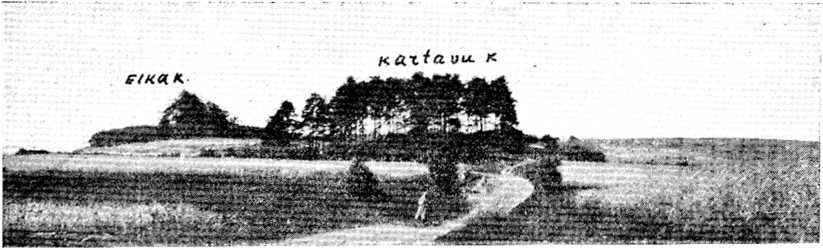 EIKA K.
Kartavu K